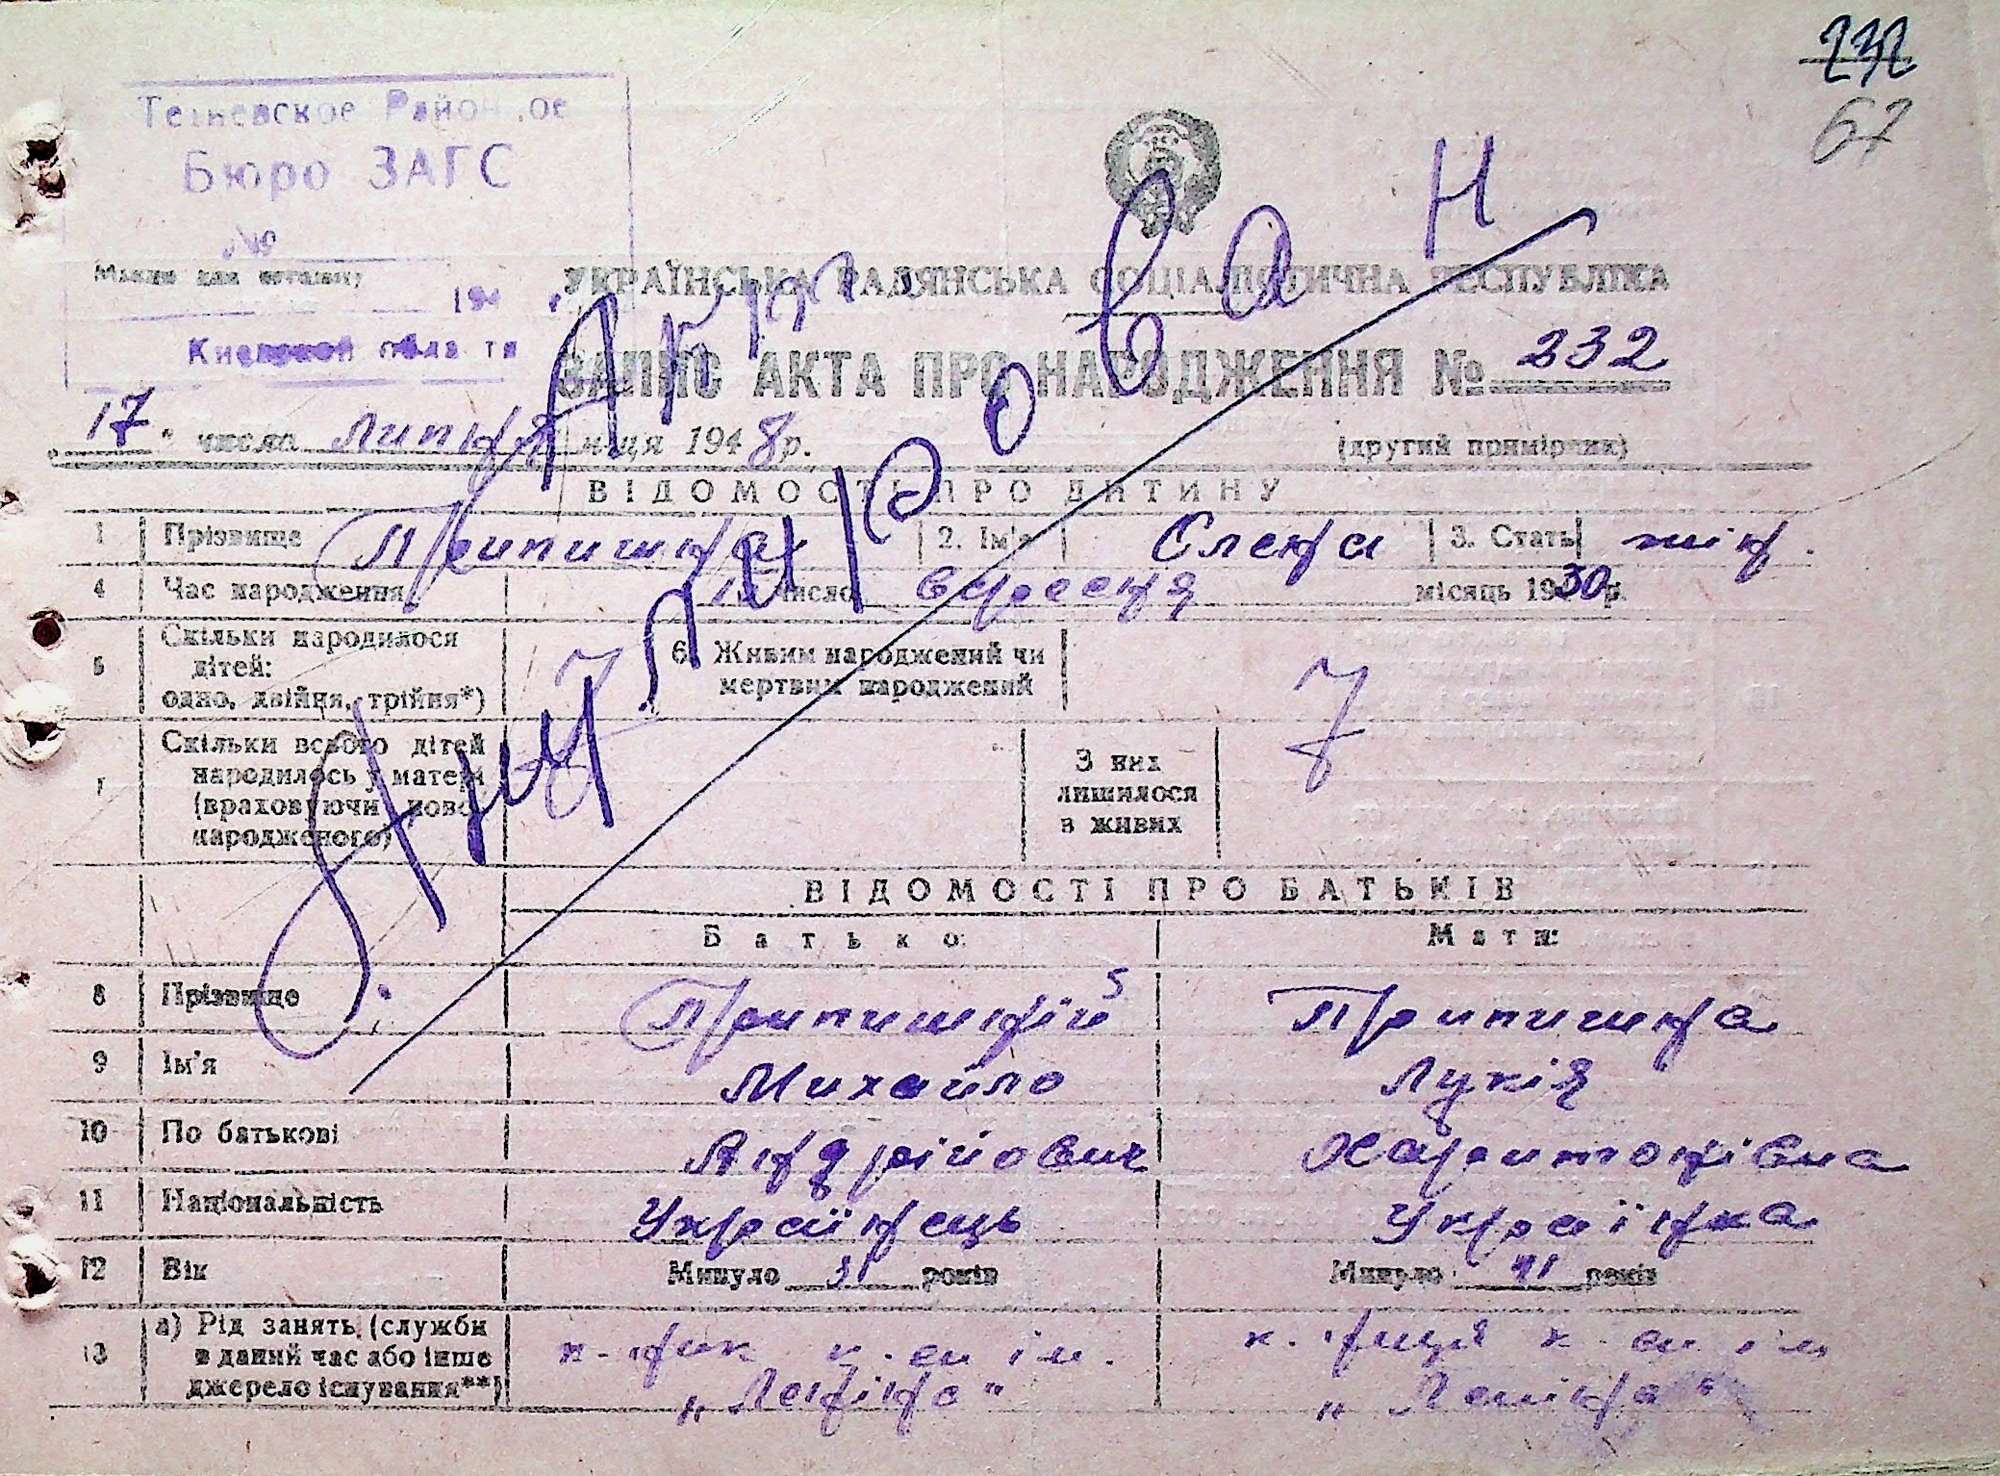 232
67
Тетиевское Районное
Бюро ЗАГС
№
194
Киевской области
УКРАЇНСЬКА РАДЯНСЬКА СОЦІАЛІСТИЧНА РЕСПУБЛІКА
ЗАПИС АКТА ПРО НАРОДЖЕННЯ № 232
17 " числа липня м-ця 1948 р. (другий примірник)
Акт Анульовано
ВІДОМОСТІ ПРО ДИТИНУ
1 Прізвище Припишна 2. Ім'я Олена 3. Стать жін.
4 Час народження число вересня місяць 1930 р.
5 Скільки народилося дітей: одно, двійня, трійня*) 6. Живим народжений чи мертвим народжений
7 Скільки всього дітей народилось у матері (враховуючи новонародженого) 7 З них лишилося в живих 7
ВІДОМОСТІ ПРО БАТЬКІВ
Батько: Мати:
8 Прізвище Припишній Припишна
9 Ім'я Михайло Лукія
10 По батькові Андрійович Харитонівна
11 Національність Українець Українка
12 Вік Минуло років Минуло 41 років
13 а) Рід занять (служби в даний час або інше джерело існування**) к-г ім. к-г ім
„Леніна" „Леніна"